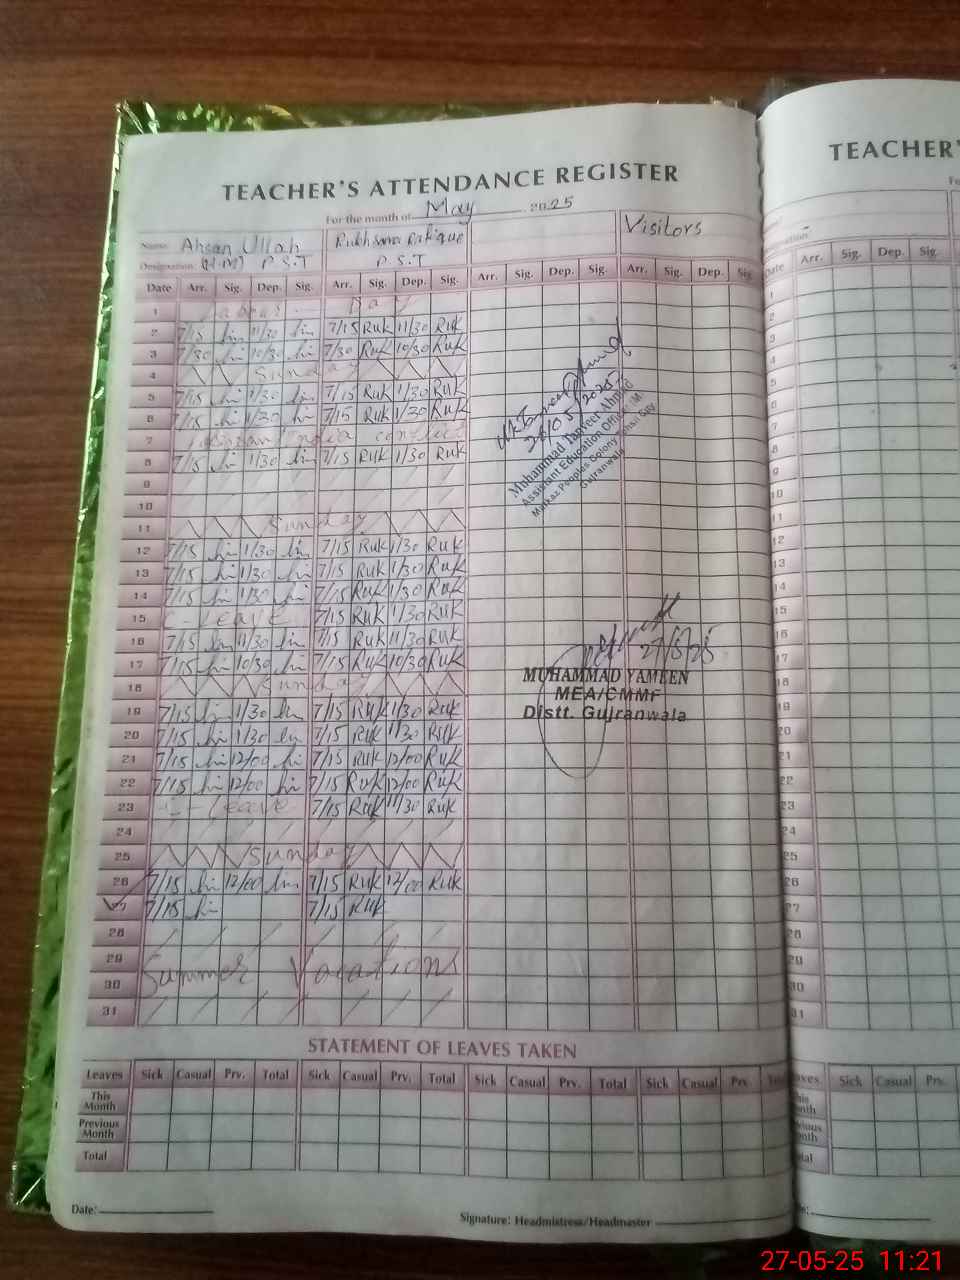 TEACHER'S ATTENDANCE REGISTER
For the month of May 2025
Name: Ahsan Ullah Rukhsana Rafique Visitors
Designation: (H.M) P.S.T P.S.T
Date Arr. Sig. Dep. Sig. Arr. Sig. Dep. Sig. Arr. Sig. Dep. Sig. Arr. Sig. Dep. Sig.
1 Labour Day
2 7/15 11/30 7/15 Ruk 11/30 Ruk
3 7/30 10/30 7/30 Ruk 10/30 Ruk
4 Sunday
5 7/15 1/30 7/15 Ruk 1/30 Ruk
6 7/15 1/30 7/15 Ruk 1/30 Ruk
7 India conflict
8 7/15 1/30 7/15 Ruk 1/30 Ruk
9
10
11 Sunday
12 7/15 1/30 7/15 Ruk 1/30 Ruk
13 7/15 1/30 7/15 Ruk 1/30 Ruk
14 7/15 1/30 7/15 Ruk 1/30 Ruk
15 C-Leave 7/15 Ruk 1/30 Ruk
16 7/15 11/30 7/15 Ruk 11/30 Ruk
17 7/15 10/30 7/15 Ruk 10/30 Ruk
18 Sunday
19 7/15 1/30 7/15 Ruk 1/30 Ruk
20 7/15 1/30 7/15 Ruk 1/30 Ruk
21 7/15 12/00 7/15 Ruk 12/00 Ruk
22 7/15 12/00 7/15 Ruk 12/00 Ruk
23 C-Leave 7/15 Ruk 11/30 Ruk
24
25 Sunday
26 7/15 12/00 7/15 Ruk 12/00 Ruk
27 7/15 7/15 Ruk
28
29
30 Summer Vacations
31
Muhammad Tanveer Ahmad
Assistant Education Officer (M)
Markaz Peoples Colony
Gujranwala
27/5/25
MUHAMMAD YAMEEN
MEA/CMMF
Distt. Gujranwala
STATEMENT OF LEAVES TAKEN
Leaves Sick Casual Prv. Total Sick Casual Prv. Total Sick Casual Prv. Total Sick Casual Prv.
This Month
Previous Month
Total
Date:
Signature: Headmistress/Headmaster
TEACHER'
Date Arr. Sig. Dep. Sig.
1
2
3
4
5
6
7
8
9
10
11
12
13
14
15
16
17
18
19
20
21
22
23
24
25
26
27
28
29
30
31
Sick Casual Prv.
27-05-25 11:21